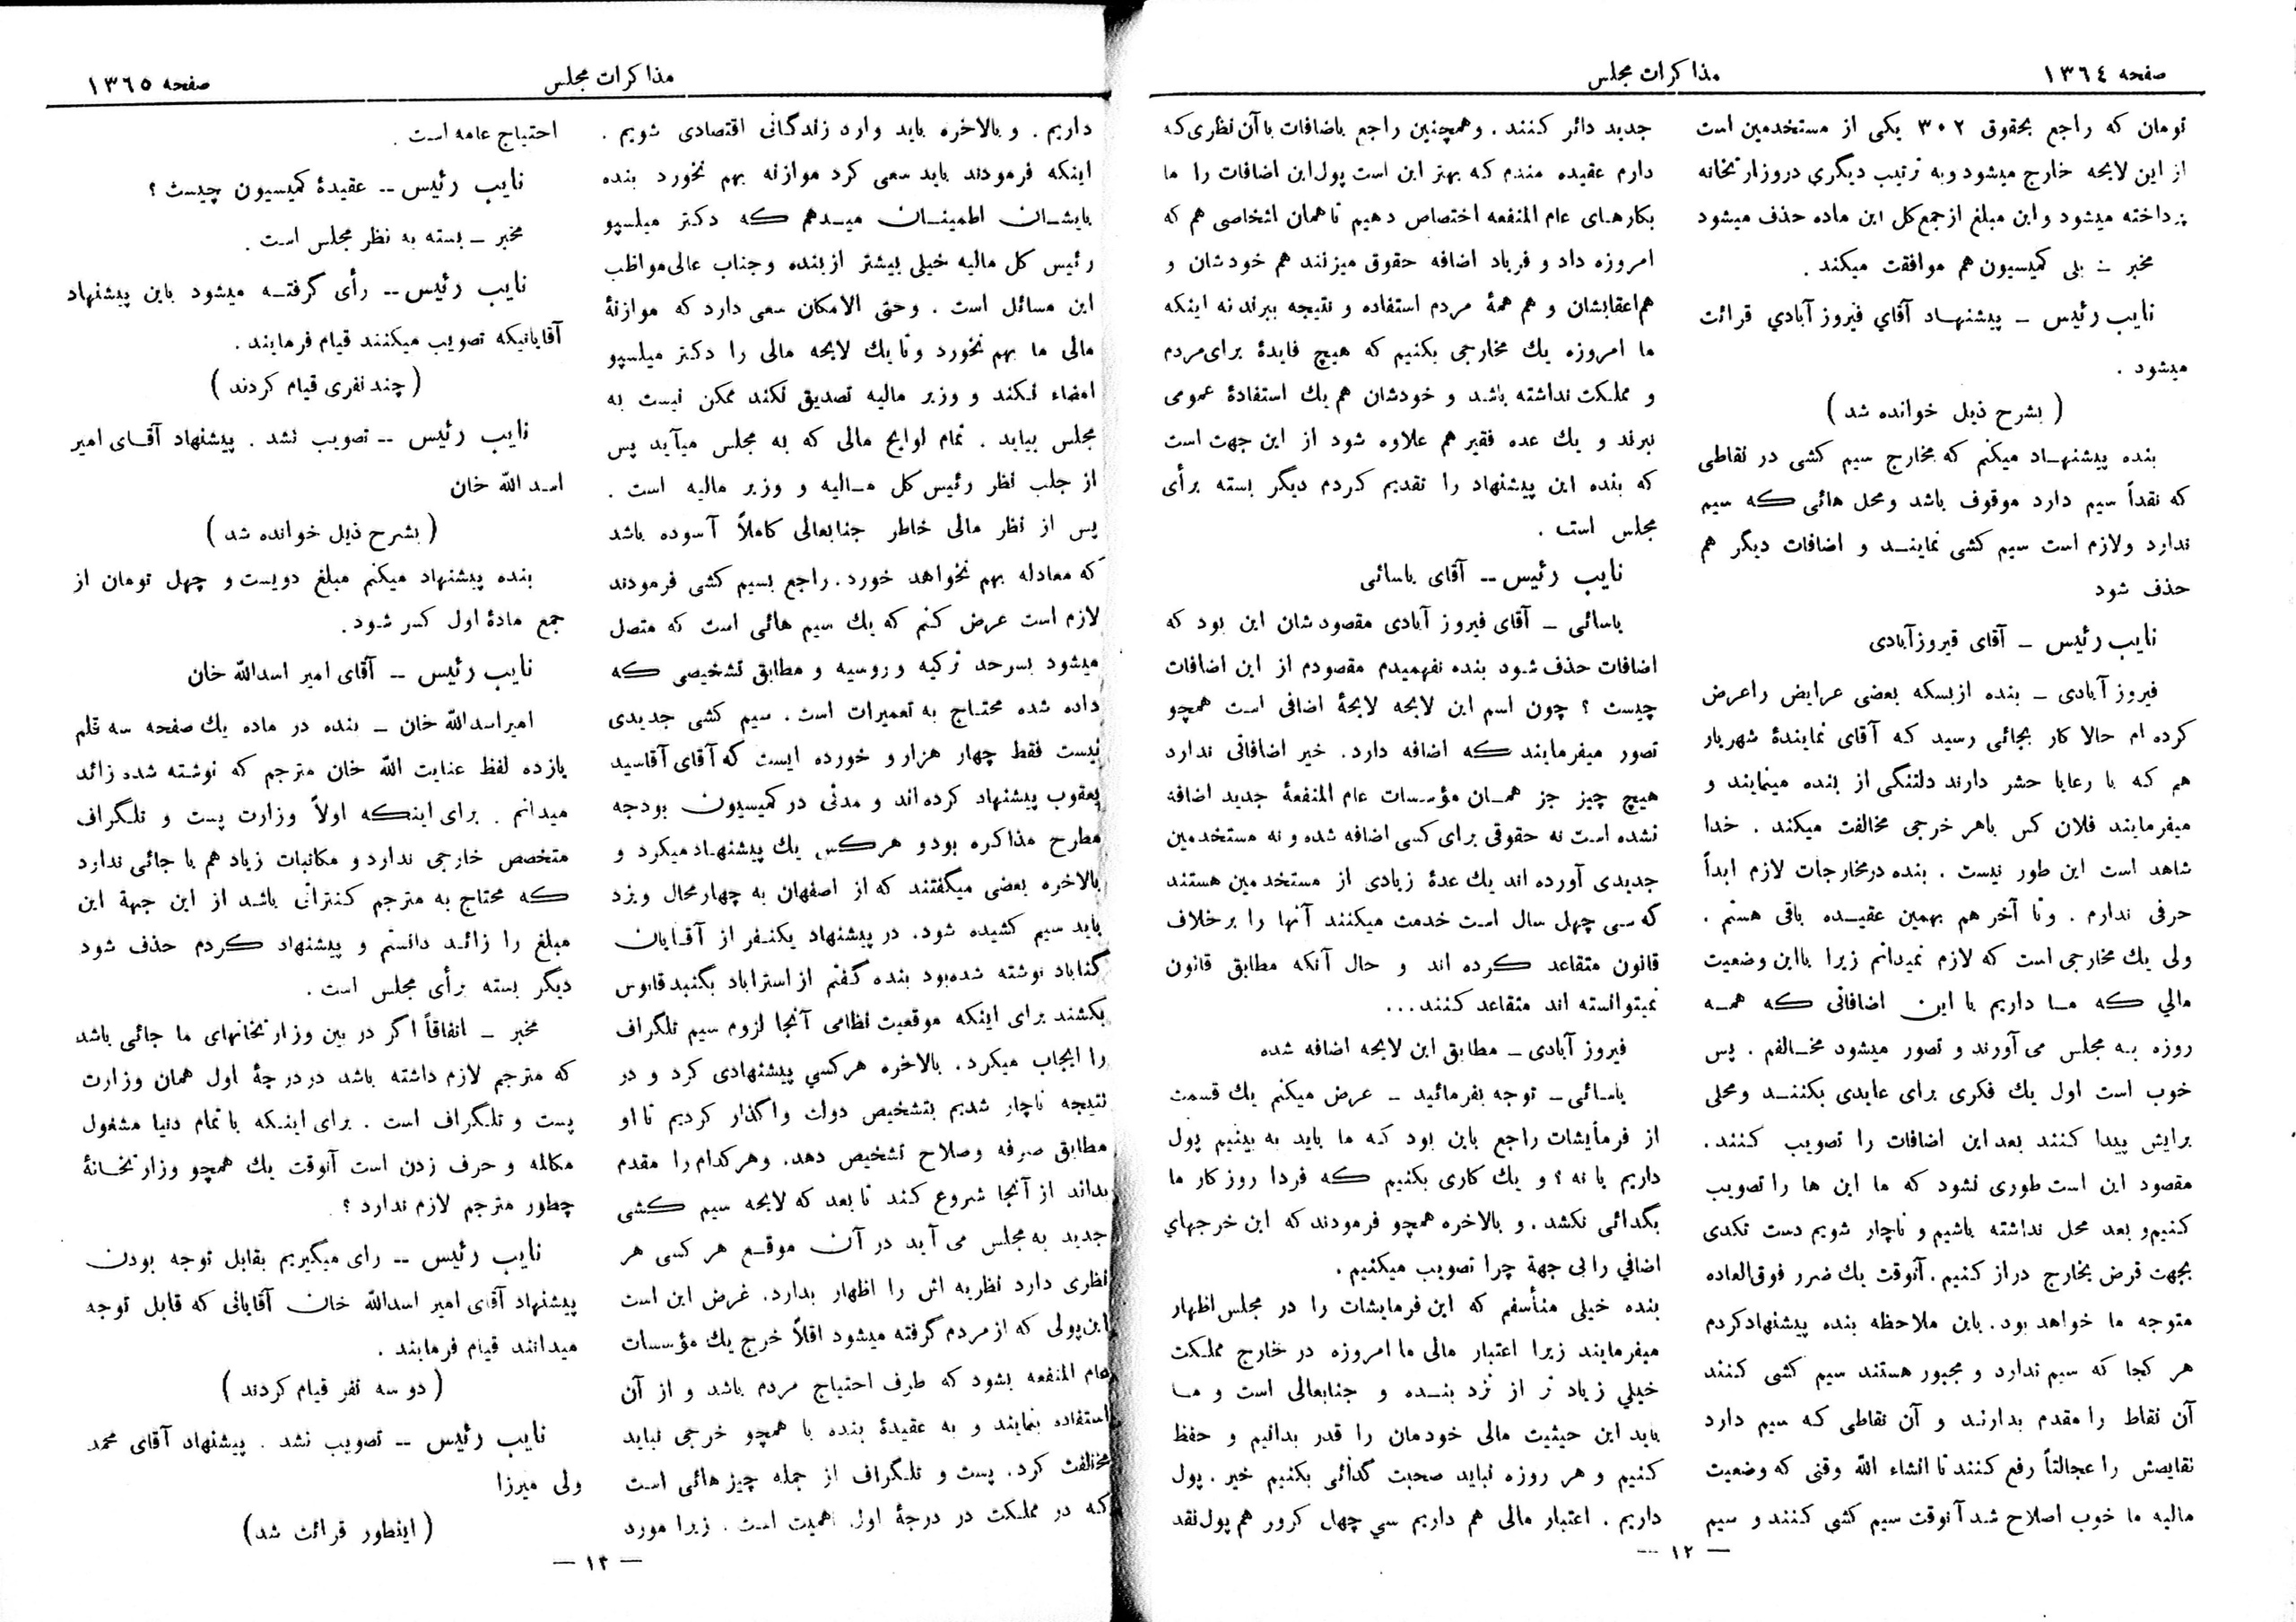 صفحه ١٣٦٤
مذاکرات مجلس
تومان که راجع بحقوق ٣٠٢ یکی از مستخدمین است
از این لایحه خارج میشود و به ترتیب دیگری در وزارتخانه
پرداخته میشود و این مبلغ از جمع کل این ماده حذف میشود
مخبر ــ بلی کمیسیون هم موافقت میکند .
نایب رئیس ــ پیشنهـاد آقاي فیروز آبادي قرائت
میشود .
( بشرح ذیل خوانده شد )
بنده پیشنهـاد میکنم که مخارج سیم کشی در نقاطی
که نقداً سیم دارد موقوف باشد و محل هائی که سیم
ندارد و لازم است سیم کشی نماینـد و اضافات دیگر هم
حذف شود
نایب رئیس ــ آقای فیروزآبادی
فیروز آبادی ــ بنده از بسکه بعضی عرایض را عرض
کرده ام حالا کار بجائی رسید که آقای نمایندهٔ شهریار
هم که با رعایا حشر دارند دلتنگی از بنده مینمایند و
میفرمایند فلان کس باهر خرجی مخالفت میکند . خدا
شاهد است این طور نیست . بنده در مخارجات لازم ابداً
حرفی ندارم . و تا آخر هم بهمین عقیـده باقی هستم .
ولی یك مخارجی است که لازم نمیدانم زیرا با این وضعیت
مالي که مـا داریم با این اضافاتی که همـه
روزه به مجلس می آورند و تصور میشود مخـالفم . پس
خوب است اول یك فکری برای عایدی بکننـد و محلی
برایش پیدا کنند بعد این اضافات را تصویب کنند .
مقصود این است طوری نشود که ما این ها را تصویب
کنیم و بعد محل نداشته باشیم و ناچار شویم دست تکدی
بجهت قرض بخارج دراز کنیم . آنوقت یك ضرر فوق العاده
متوجه ما خواهد بود . باین ملاحظه بنده پیشنهاد کردم
هر کجا که سیم ندارد و مجبور هستند سیم کشی کنند
آن نقاط را مقدم بدارند و آن نقاطی که سیم دارد
نقایصش را عجالتاً رفع کنند تا انشاء الله وقتی که وضعیت
مالیه ما خوب اصلاح شد آنوقت سیم کشی کنند و سیم
جدید دائر کنند . و همچنین راجع باضافات با آن نظری که
دارم عقیده مندم که بهتر این است پول این اضافات را ما
بکارهـای عام المنفعه اختصاص دهیم تا همان اشخاصی هم که
امروزه داد و فریاد اضافه حقوق میزنند هم خودشان و
هم اعقابشان و هم همهٔ مردم استفاده و نتیجه ببرند نه اینکه
ما امروزه یك مخارجی بکنیم که هیچ فایدهٔ برای مردم
و مملکت نداشته باشد و خودشان هم یك استفادهٔ عمومی
نبرند و یك عده فقیر هم علاوه شود از این جهت است
که بنده این پیشنهاد را تقدیم کردم دیگر بسته برأی
مجلس است .
نایب رئیس ــ آقای یاسائی
یاسائی ــ آقای فیروز آبادی مقصودشان این بود که
اضافات حذف شود بنده نفهمیدم مقصودم از این اضافات
چیست ؟ چون اسم این لایحه لایحهٔ اضافی است همچو
تصور میفرمایند که اضافه دارد . خیر اضافاتی ندارد
هیچ چیز جز همـان مؤسسات عام المنفعهٔ جدید اضافه
نشده است نه حقوقی برای کسی اضافه شده و نه مستخدمین
جدیدی آورده اند یك عدهٔ زیادی از مستخدمین هستند
که سی چهل سال است خدمت میکنند آنها را برخلاف
قانون متقاعد کرده اند و حال آنکه مطابق قانون
نمیتوانسته اند متقاعد کنند...
فیروز آبادی ــ مطابق این لایحه اضافه شده
یاسائی ــ توجه بفرمائید ــ عرض میکنم یك قسمت
از فرمایشات راجع باین بود که ما باید به بینیم پول
داریم یا نه ؟ و یك کاری بکنیم که فردا روز کار ما
بگدائی نکشد . و بالاخره همچو فرمودند که این خرجهاي
اضافي را بی جهة چرا تصویب میکنیم .
بنده خیلی متأسفم که این فرمایشات را در مجلس اظهار
میفرمایند زیرا اعتبار مالی ما امروزه در خارج مملکت
خیلي زیاد تر از نزد بنـده و جنابعالی است و مـا
باید این حیثیت مالی خودمان را قدر بدانیم و حفظ
کنیم و هر روزه نباید صحبت گدائی بکنیم خیر . پول
داریم . اعتبار مالی هم داریم سی چهل کرور هم پول نقد
— ١٢ —
مذاکرات مجلس
صفحه ١٣٦٥
داریم . و بالاخره باید وارد زندگانی اقتصادی شویم .
اینکه فرمودند باید سعی کرد موازنه بهم نخورد بنده
بایشـان اطمینـان میـدهم که دکتر میلسپو
رئیس کل مالیه خیلی بیشتر از بنده و جناب عالی مواظب
این مسائل است . و حتی الامکان سعی دارد که موازنهٔ
مالی ما بهم نخورد و تا یك لایحه مالی را دکتر میلسپو
امضاء نکند و وزیر مالیه تصدیق نکند ممکن نیست به
مجلس بیاید . تمام لوایح مالی که به مجلس میآید پس
از جلب نظر رئیس کل مـالیه و وزیر مالیه است .
پس از نظر مالی خاطر جنابعالی کاملاً آسوده باشد
که معادله بهم نخواهد خورد . راجع بسیم کشی فرمودند
لازم است عرض کنم که یك سیم هائی است که متصل
میشود بسرحد ترکیه و روسیه و مطابق تشخیصی که
داده شده محتـاج به تعمیرات است . سیم کشی جدیدی
نیست فقط چهار هزار و خورده ایست که آقای آقاسید
یعقوب پیشنهاد کرده اند و مدتی در کمیسیون بودجه
مطرح مذاکره بود و هرکس یك پیشنهـاد میکرد و
بالاخره بعضی میگفتند که از اصفهان به چهارمحال و یزد
باید سیم کشیده شود . در پیشنهاد یکنفر از آقـایان
گناباد نوشته شده بود بنده گفتم از استراباد بگنبد قابوس
بکشند برای اینکه موقعیت نظامی آنجا لزوم سیم تلگراف
را ایجاب میکرد . بالاخره هرکسي پیشنهادی کرد و در
نتیجه ناچار شدیم بتشخیص دولت واگذار کردیم تا او
مطابق صرفه و صلاح تشخیص دهد . و هرکدام را مقدم
بداند از آنجا شروع کند تا بعد که لایحه سیم کشی
جدید به مجلس می آید در آن موقـع هر کسی هر
نظری دارد نظریه اش را اظهار بدارد . غرض این است
این پولی که از مردم گرفته میشود اقلاً خرج یك مؤسسات
عام المنفعه بشود که طرف احتیاج مردم باشد و از آن
استفاده بنمایند و به عقیدهٔ بنده با همچو خرجی نباید
مخالفت کرد . پست و تلگراف از جمله چیز هائی است
که در مملکت در درجهٔ اول اهمیت است . زیرا مورد
احتیاج عامه است .
نایب رئیس ــ عقیدهٔ کمیسیون چیست ؟
مخبر ــ بسته به نظر مجلس است .
نایب رئیس ــ رأی گرفتـه میشود باین پیشنهاد
آقایانیکه تصویب میکنند قیام فرمایند .
( چند نفری قیام کردند )
نایب رئیس ــ تصویب نشد . پیشنهاد آقـای امیر
اسد الله خان
( بشرح ذیل خوانده شد )
بنده پیشنهاد میکنم مبلغ دویست و چهل تومان از
جمع مادهٔ اول کسر شود .
نایب رئیس ــ آقای امیر اسدالله خان
امیر اسدالله خان ــ بنده در ماده یك صفحه سه قلم
یازده لفظ عنایت الله خان مترجم که نوشته شده زائد
میدانم . برای اینکه اولاً وزارت پست و تلگراف
متخصص خارجی ندارد و مکاتبات زیاد هم با جائی ندارد
که محتاج به مترجم کنتراتی باشد از این جهة این
مبلغ را زائد دانستم و پیشنهاد کردم حذف شود
دیگر بسته برأی مجلس است .
مخبر ــ اتفاقاً اگر در بین وزارتخانهای ما جائی باشد
که مترجم لازم داشته باشد در درجهٔ اول همان وزارت
پست و تلگراف است . برای اینکه با تمام دنیا مشغول
مکالمه و حرف زدن است آنوقت یك همچو وزارتخـانهٔ
چطور مترجم لازم ندارد ؟
نایب رئیس ــ رای میگیریم بقابل توجه بودن
پیشنهاد آقای امیر اسدالله خان آقایانی که قابل توجه
میدانند قیام فرمایند .
( دو سه نفر قیام کردند )
نایب رئیس ــ تصویب نشد . پیشنهاد آقای محمد
ولی میرزا
( اینطور قرائت شد )
— ١٣ —